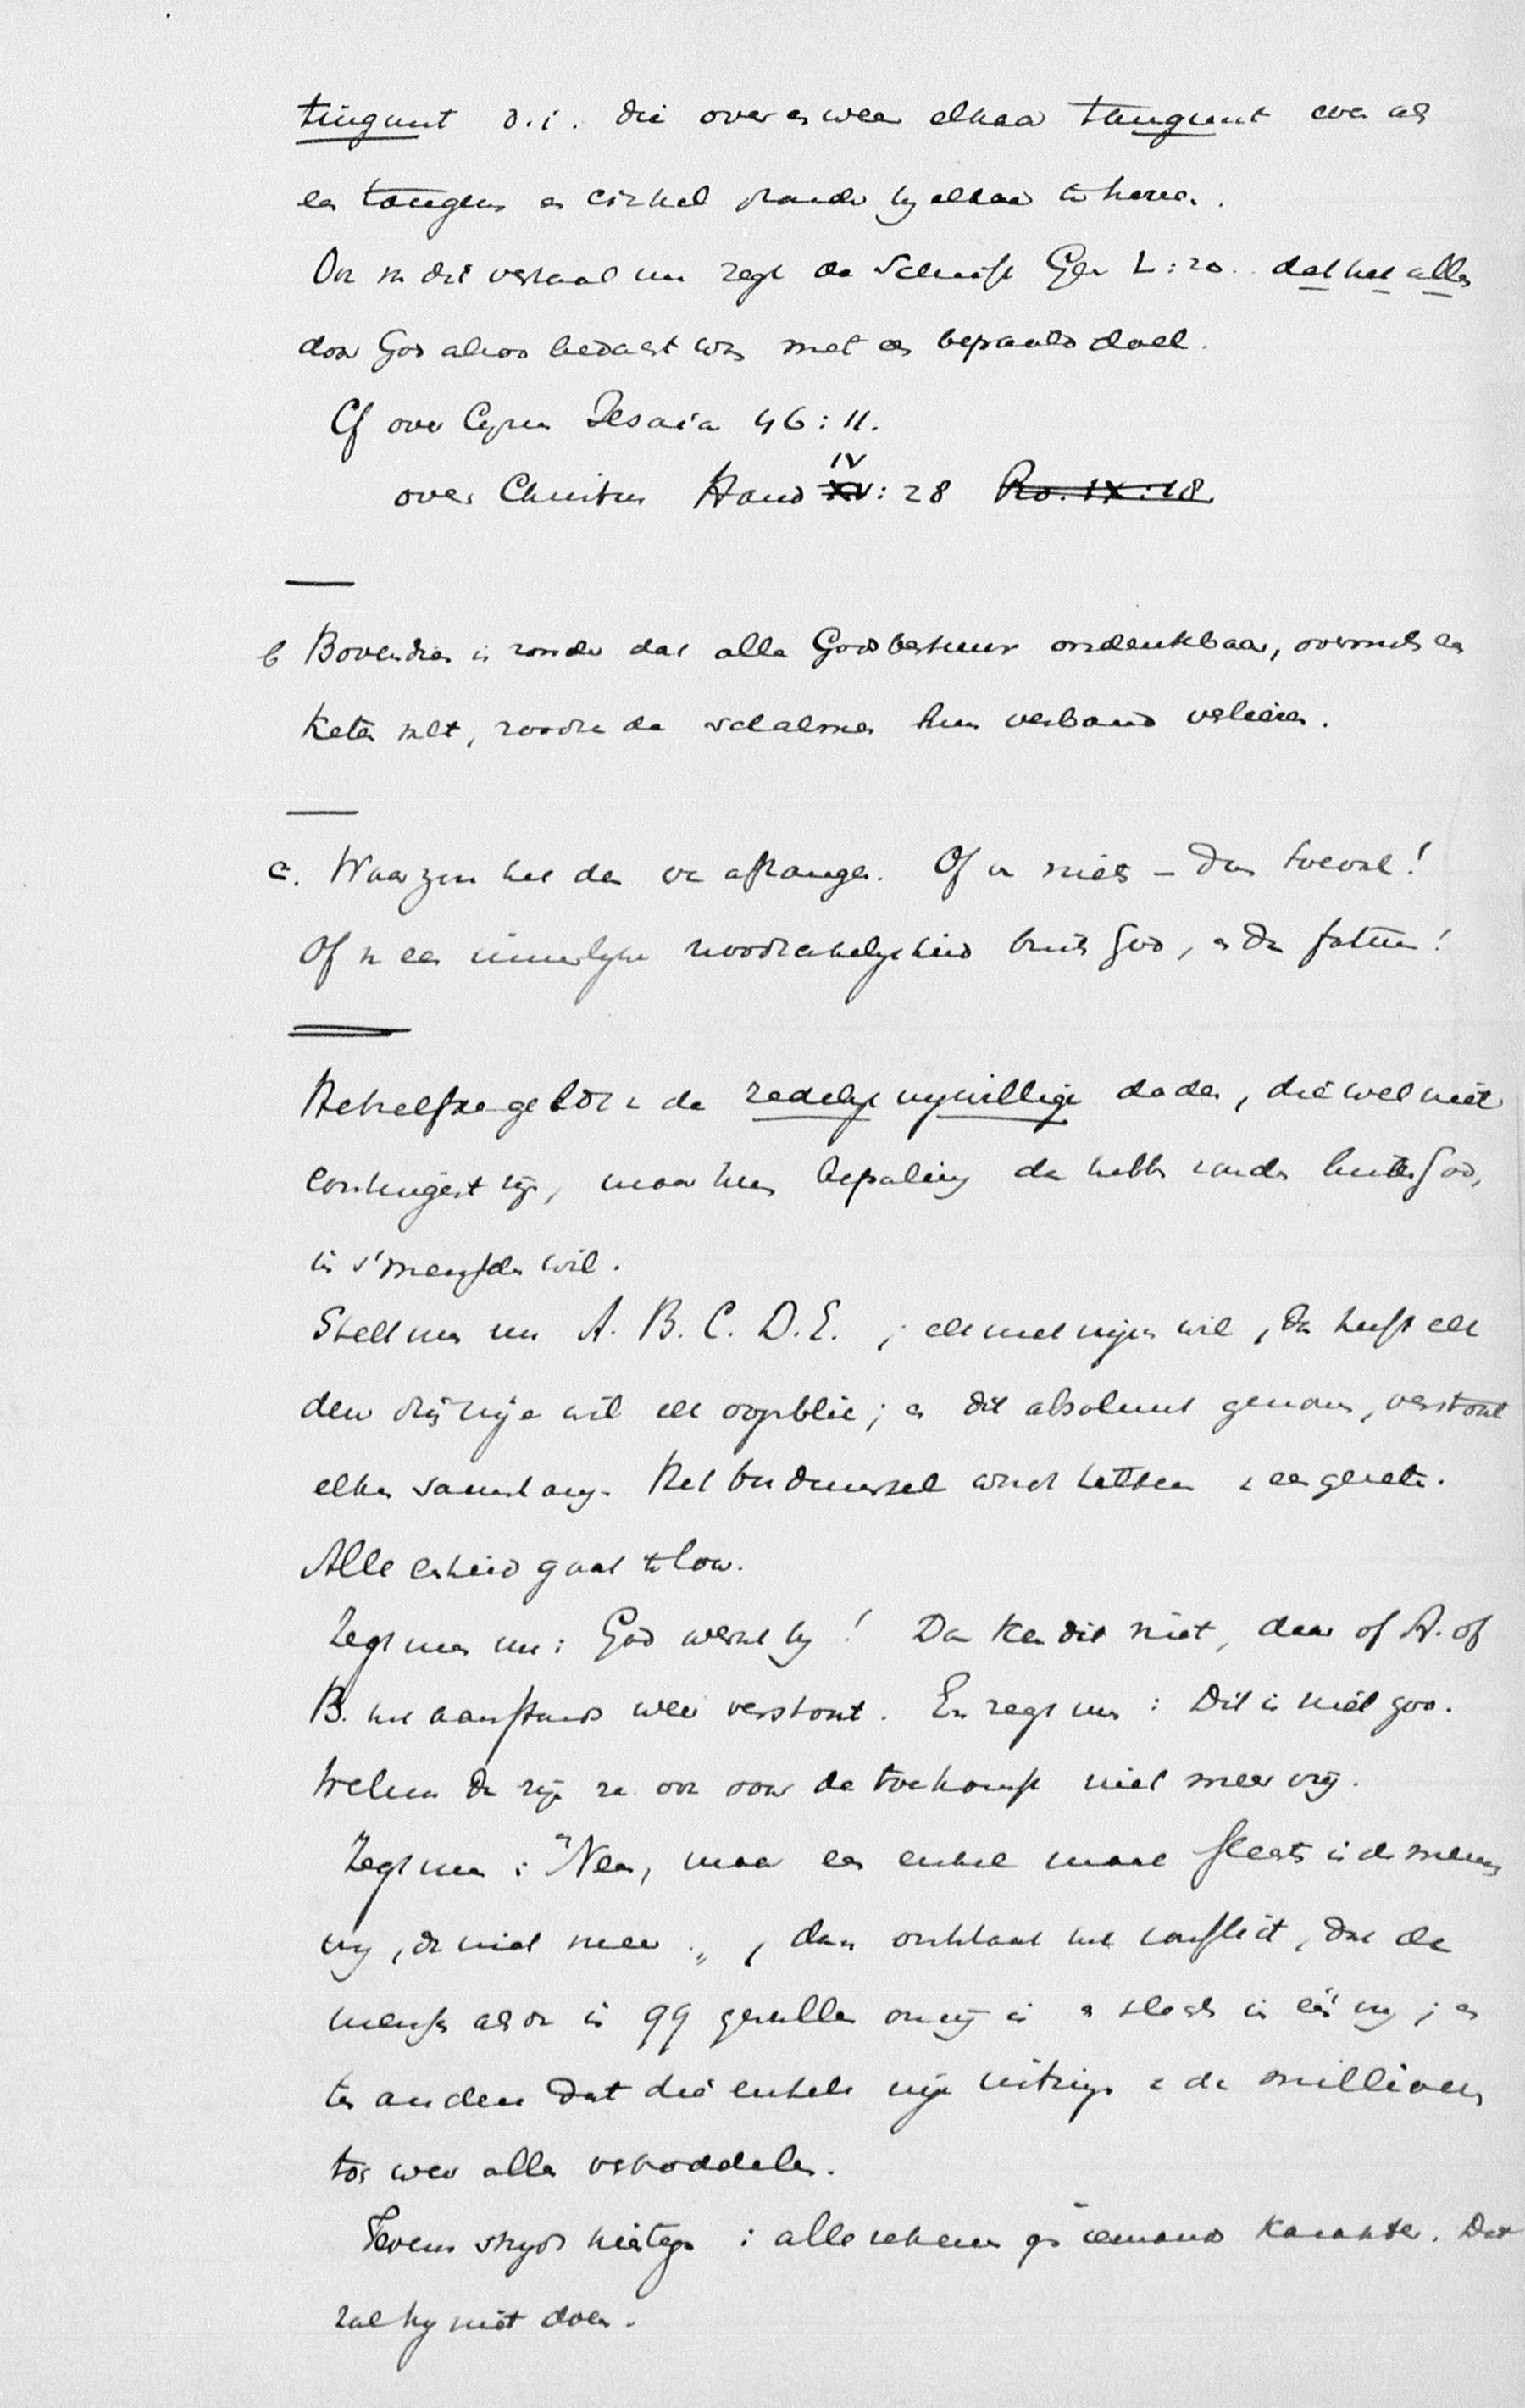 tingunt d.i. die over en weer elkaar tangunt even als
een tangens en cirkel zonder by elkaar te horen.
Ook in dit verhaal nu zegt de Schrift Gen L:20. dat het alles
door God alzoo bedacht was met een bepaald doel.
Cf over Cyrus Jesaia 46:11.
over Christus Hand XV IV:28 Ro. IX:18
b Bovendien is zonder dat alle Godsbestuur ondenkbaar, overmits een
keten valt, zoodra de schalmen hun verband verliezen.
c. Waar zou het dan van afhangen. Of van niets – dan toeval!
Of van een innerlyke noodzakelykheid buiten God, en dan fatum!
Hetzelfde geldt van de redelyk vrywillige daden, die wel niet
contingent zyn, maar hun bepaling dan hebben zouden buiten God,
in s'menschen wil.
Stelt men nu A. B. C. D. E. ; elk met vryen wil, dan heeft elk
den vryen wil elk oogenblik; en dit absoluut genomen, verstoort
elken samenhang. Het
Alle eenheid gaat te loor.
Zegt men nu: God werkt by! Dan kan dit niet, daar of A. of
B. het aanstonds weer verstoort. En zegt men: Dit is niet zoo.
Welnu dan zyn ze ook voor de toekomst niet meer vry.
Zegt men: "Neen, maar een enkel maal slechts is de mensch
vry, en niet meer", dan ontstaat het conflict, dat de
mensch alzoo in 99 gevallen onvry is en slechts in één vry; en
ten anderen dat die enkele vrye uitingen van de millioenen
toch weer alles verbroddelen.
Tevens strydt hiertegen: alle rekenen op iemands karakter. Dat
zal hy niet doen.